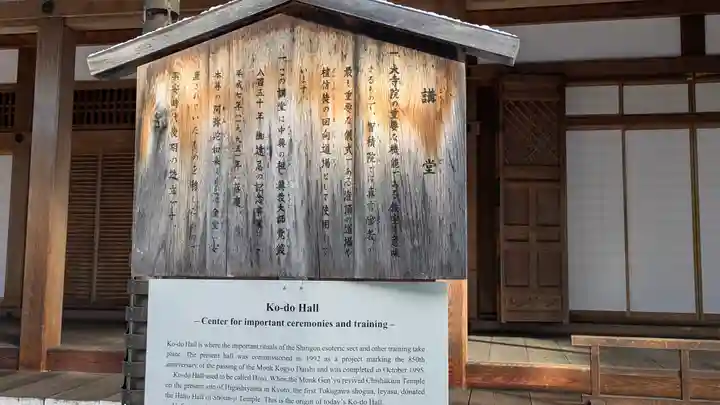 講堂
一、大寺院の重要な機能である教室を意味
するもので、智積院では真言宗の
最も重要な儀式である灌頂の道場や
檀信徒の回向道場として使用して
います。
一、この講堂は中興の祖・興教大師覚鑁
八百五十年御遠忌の記念事業として
平成七年(一九九五年)落慶。
本尊の阿弥陀如来
Ko-do Hall
– Center for important ceremonies and training –
Ko-do Hall is where the important rituals of the Shingon esoteric sect and other training take
place. The present hall was commissioned in 1992 as a project marking the 850th
anniversary of the passing of the Monk Kogyo Daishi and was completed in October 1995.
Ko-do Hall used to be called Hojo. When the Monk Gen'yu revived Chishakuin Temple
on the present site of Higashiyama in Kyoto, the first Tokugawa shogun, Ieyasu, donated
the Hatto Hall of Shounji Temple. This is the origin of today's Ko-do Hall.